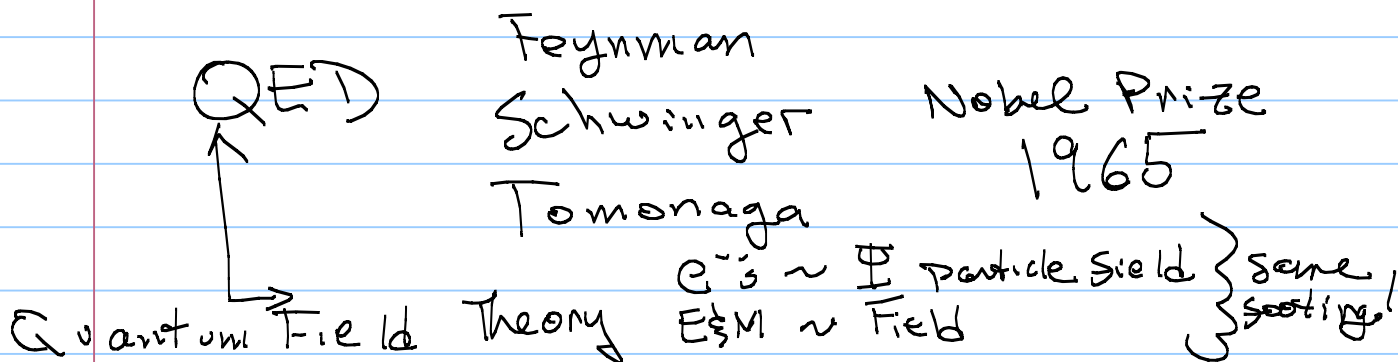 QED
Feynman
Schwinger
Tomonaga
Nobel Prize
1965
Quantum Field Theory
e⁻'s ~ Ψ particle field
E&M ~ Field
same
footing!